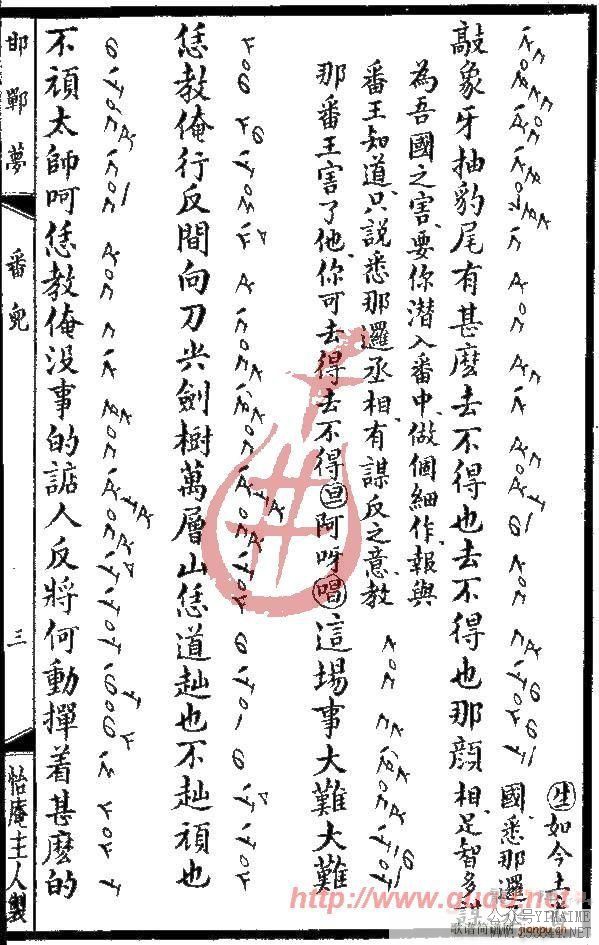 敲象牙抽豹尾有甚麼去不得也去不得也那顔
生如今土
國、悉那邏
相、足智多
為吾國之害、要你潛入番中、做個細作、報與
番王知道、只說悉那邏丞相、有謀反之意、教
那番王害了他、你可去得去不得旦阿呀唱這場事大難大難
恁教俺行反間向刀尖劍樹萬層山恁道赸也不赸頑也
不頑太師呵恁教俺没事的人反將何動撣着甚麽的
邯鄲夢
番兒
三
怡庵主人製
http://www.guqu.net
公众号YPMSME
歌谱简谱网 jianpu.cn